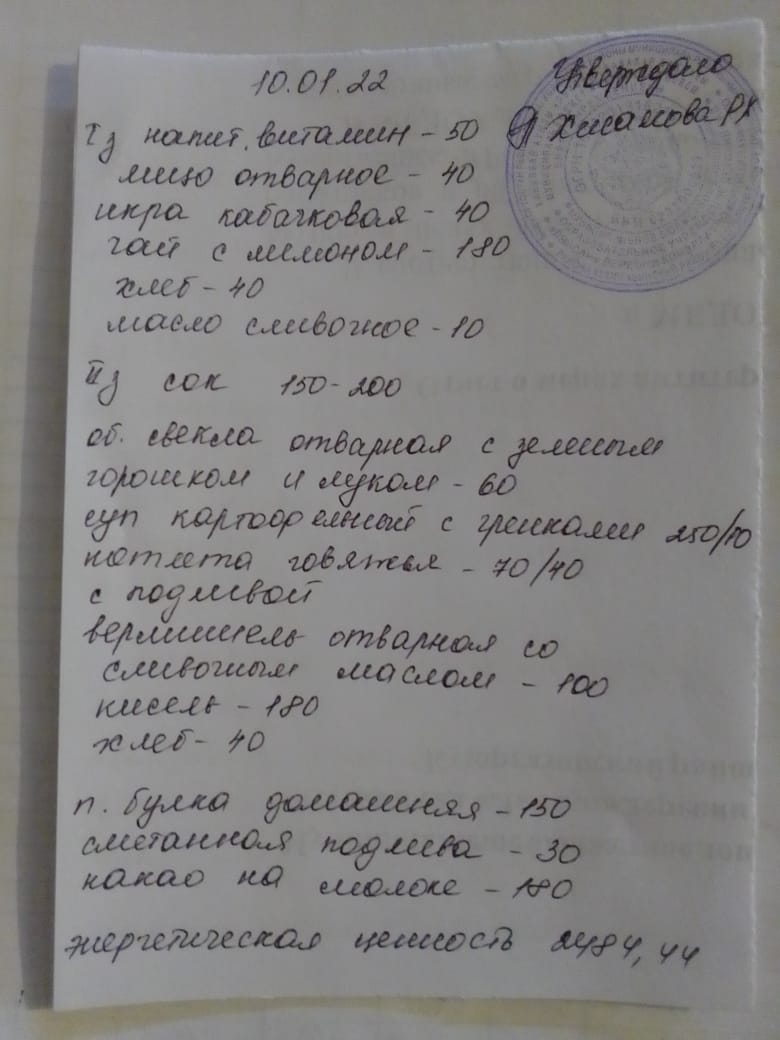 10.01.22
Утверждаю
Iз напит. витамин - 50
яйцо отварное - 40
икра кабачковая - 40
чай с лимоном - 180
хлеб - 40
масло сливочное - 10
IIз сок 150-200
об. свекла отварная с зеленым
горошком и луком - 60
суп картофельный с гренками 250/10
котлета говяжья - 70/40
с подливой
вермишель отварная со
сливочным маслом - 100
кисель - 180
хлеб - 40
п. булка домашняя - 150
сметанная подлива - 30
какао на молоке - 180
энергетическая ценность 2484,44